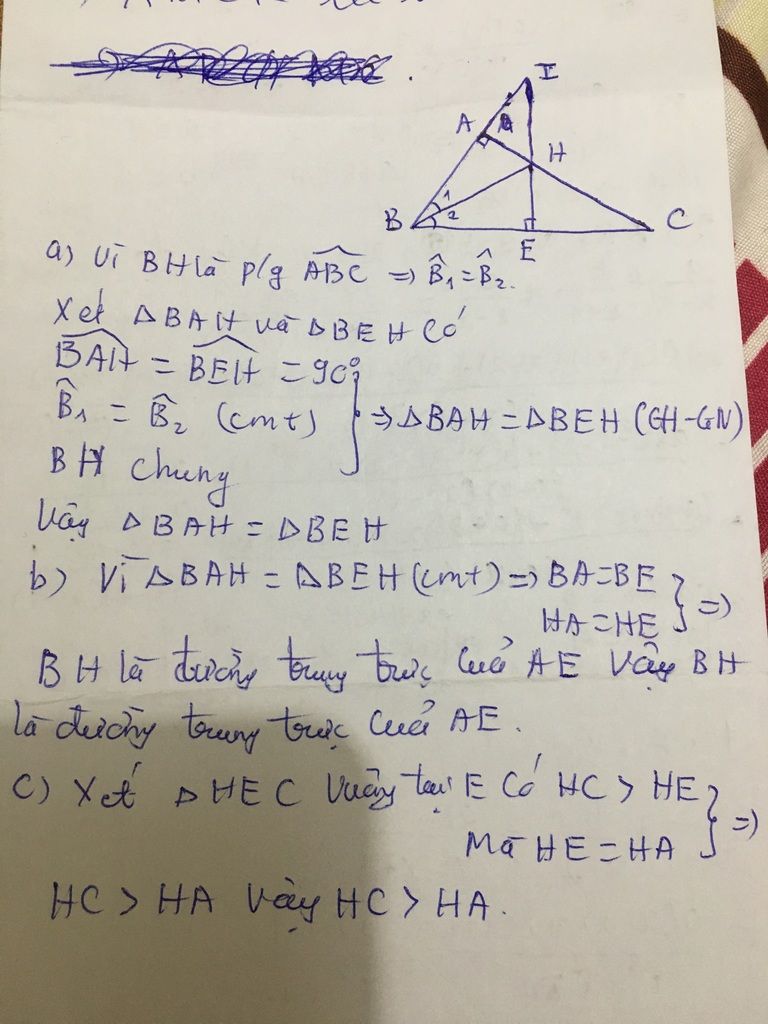 I
A
H
B
1
2
C
E
a) Vì BH là p/g \widehat{ABC} => B̂₁ = B̂₂.
Xét ΔBAH và ΔBEH có
\widehat{BAH} = \widehat{BEH} = 90°
B̂₁ = B̂₂ (cmt) } => ΔBAH = ΔBEH (CH-GN)
BH chung
Vậy ΔBAH = ΔBEH
b) Vì ΔBAH = ΔBEH (cmt) => BA = BE
HA = HE } =>
BH là đường trung trực của AE Vậy BH
là đường trung trực của AE.
c) Xét ΔHEC vuông tại E có HC > HE
Mà HE = HA } =>
HC > HA Vậy HC > HA.